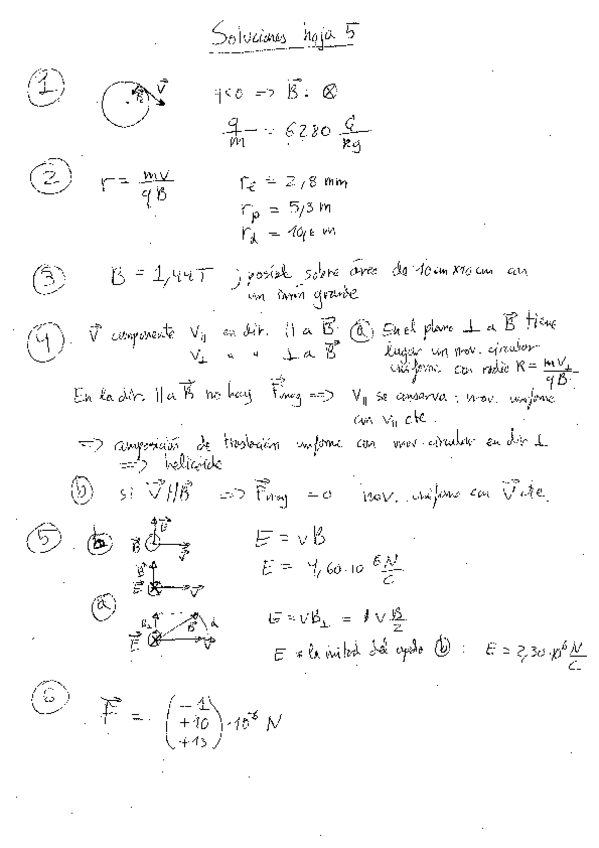 Soluciones hoja 5
① R V⃗ q<0 => B⃗ : ⊗
q/m = 6280 C/kg
② r = mv/qB r_e = 2,8 mm
r_p = 5,3 m
r_α = m
③ B = 1,44T ; posible sobre área de 10cm x 10cm con
un imán grande
④ V⃗ componente V∥ en dir. ∥ a B⃗
V⊥ " " ⊥ a B⃗
ⓐ En el plano ⊥ a B⃗ tiene
lugar un mov. circular
uniforme con radio R = mV⊥/qB
En la dir. ∥ a B⃗ no hay F⃗mag ==> V∥ se conserva : mov. uniforme
con V∥ cte.
=> composición de traslación uniforme con mov. circular en dir ⊥
==> helicoide
ⓑ si V⃗//B⃗ ==> F⃗mag = 0 mov. uniforme con V⃗ cte.
⑤ ⓑ E⃗ B⃗ V⃗ E = vB
B⃗ E⃗ V⃗ E = 4,60·10⁶ N/C
ⓐ B⊥ B⃗ α E⃗ V⃗ E = vB⊥ = v B/2
E = la mitad del apdo ⓑ : E = 2,30·10⁶ N/C
⑥ F⃗ = (-1 +10 +13) · N